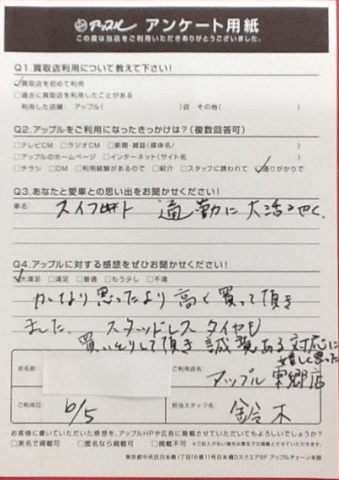 アップル アンケート用紙
この度は当店をご利用いただきありがとうございました。
Q1.買取店利用について教えて下さい!
☑買取店を初めて利用
□過去に買取店を利用したことがある
利用した店舗: アップル( )店 その他( )
Q2.アップルをご利用になったきっかけは?(複数回答可)
□テレビCM □ラジオCM □新聞・雑誌(媒体名/ )
□アップルのホームページ □インターネット(サイト名 )
□チラシ □DM □利用経験があるので □紹介 □スタッフに誘われて ☑通りがかりで
Q3.あなたと愛車との思い出をお聞かせください!
車名: スイフト 通勤に大活やく。
Q4.アップルに対する感想をぜひお聞かせください!
☑大満足 □満足 □普通 □もう少し □不満
かなり思ったより高く買って頂き
ました。スタッドレスタイヤも
買いとりして頂き誠意ある対応に
嬉しく思った
お名前:
ご利用店名: アップル東郷店
ご利用日: 6/5
担当スタッフ名: 鈴木
お客様に書いていただいた感想を、アップルHPや広告に掲載させていただいてもよろしいでしょうか?
□実名で掲載可 □匿名なら掲載可 □掲載不可
東京都中央区日本橋1丁目16番11号日本橋Dスクエア5F アップルチェーン本部